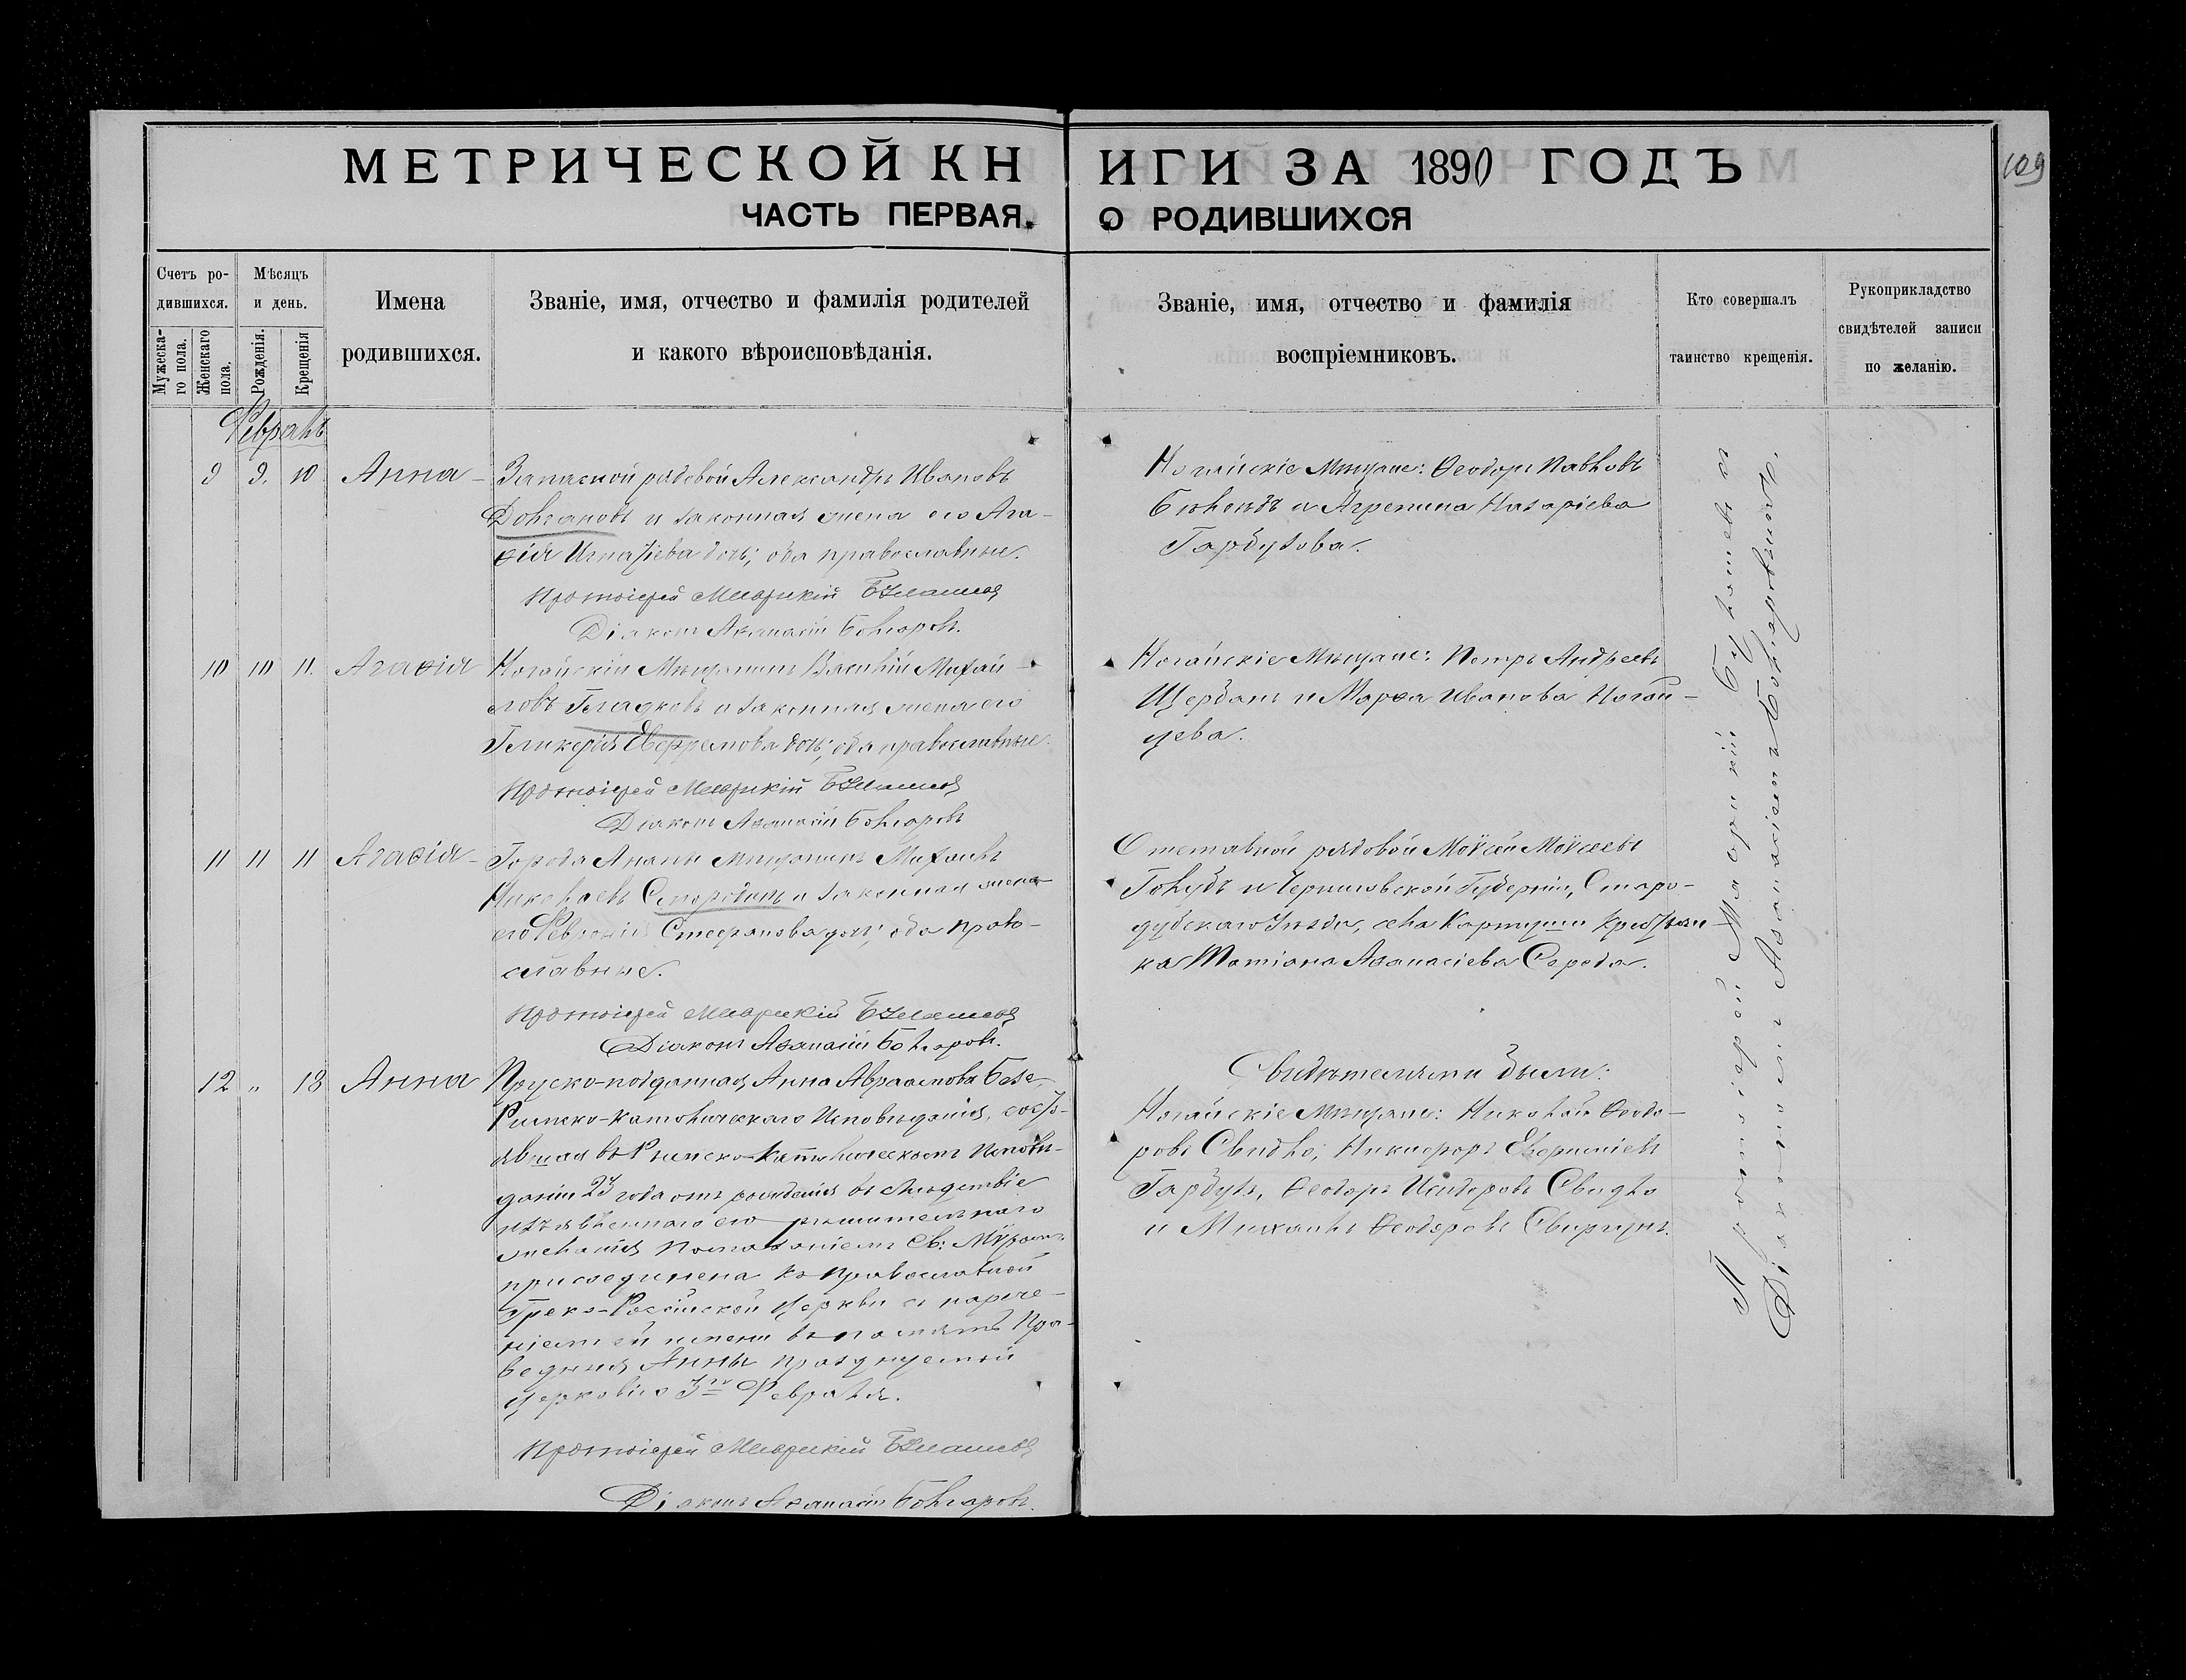 МЕТРИЧЕСКОЙ КНИГИ ЗА 1890 ГОДЪ
109
ЧАСТЬ ПЕРВАЯ. О РОДИВШИХСЯ
Счетъ ро-
дившихся.
Мужеска-
го пола.
Женскаго
пола.
Мѣсяцъ
и день.
Рожденія.
Крещенія
Имена
родившихся.
Званіе, имя, отчество и фамилія родителей
и какого вѣроисповѣданія.
Званіе, имя, отчество и фамилія
воспріемниковъ.
Кто совершалъ
таинство крещенія.
Рукоприкладство
свидѣтелей записи
по желанію.
Февраль
9 9. 10 Анна
Запасной рядовой Александръ Ивановъ
Долгановъ и законная жена его Ага-
ѳія Игнатіева дочь; оба православные.
Протоіерей Маврикій
Діаконъ Аѳанасій Болгаровъ.
Ногайскіе Мѣщане: Ѳеодоръ Павловъ
и Агрепина Назаріева
Гарбузова.
10 10 11. Агаѳія
Ногайскій Мѣщанинъ Василій Михай-
ловъ Гладковъ и законная жена его
Гликерія Евфремова дочь; оба православные.
Протоіерей Маврикій
Діаконъ Аѳанасій Болгаровъ
Ногайскіе Мѣщане: Петръ Андреевъ
Щербань и Марѳа Иванова Ногай-
цева.
11 11 11 Агаѳія
Города Анапы мѣщанинъ Михаилъ
Николаевъ и законная жена
его Февронія Стефанова дочь; оба право-
славные.
Протоіерей Маврикій
Діаконъ Аѳанасій Болгаровъ.
Отставной рядовой Моѵсей Моѵсеевъ
Голубъ и Черниговской Губерніи, Старо-
дубскаго Уѣзда, села Картуши Крестьян-
ка Татіана Аѳанасіева Середа.
12 „ 18 Анна
Прусско-подданная Анна Авраамова
Римско-Католическаго Исповѣданія, состо-
явшая въ Римско-Католическомъ Исповѣ-
даніи 23 года отъ рожденія въ слѣдствіе
изъявленнаго ею рѣшительнаго
желанія помазаніемъ Св: Мѵромъ
присоединена къ Православной
Греко-Россійской Церкви съ нарече-
ніемъ ей имени въ память Пра-
ведныя Анны празднуемой
Церковію 3го Февраля.
Протоіерей Маврикій
Діаконъ Аѳанасій Болгаровъ.
Свидѣтелями были:
Ногайскіе Мѣщане: Николай Ѳеодо-
ровъ Свидло, Никифоръ
Гарбузъ, Ѳеодоръ Исидоровъ Свидло
и Михаилъ Ѳеодоровъ
Протоіерей Маврикій съ
Діакономъ Аѳанасіемъ Болгаровымъ.